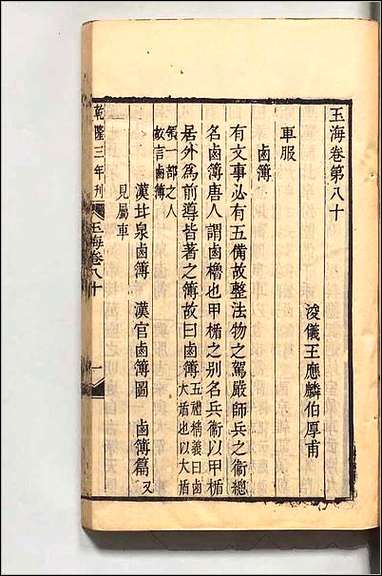 玉海卷第八十
浚儀王應麟伯厚甫
車服
鹵簿
有文事必有五備故整法物之駕嚴師兵之衞總
名鹵簿唐人謂鹵櫓也甲楯之別名兵衞以甲楯
居外爲前導皆著之簿故曰鹵簿五禮精義曰鹵大盾也以大盾
領一部之人故言鹵簿
漢甘泉鹵簿 漢官鹵簿圖 鹵簿篇又
見屬車
乾隆三年刊 玉海卷八十 一